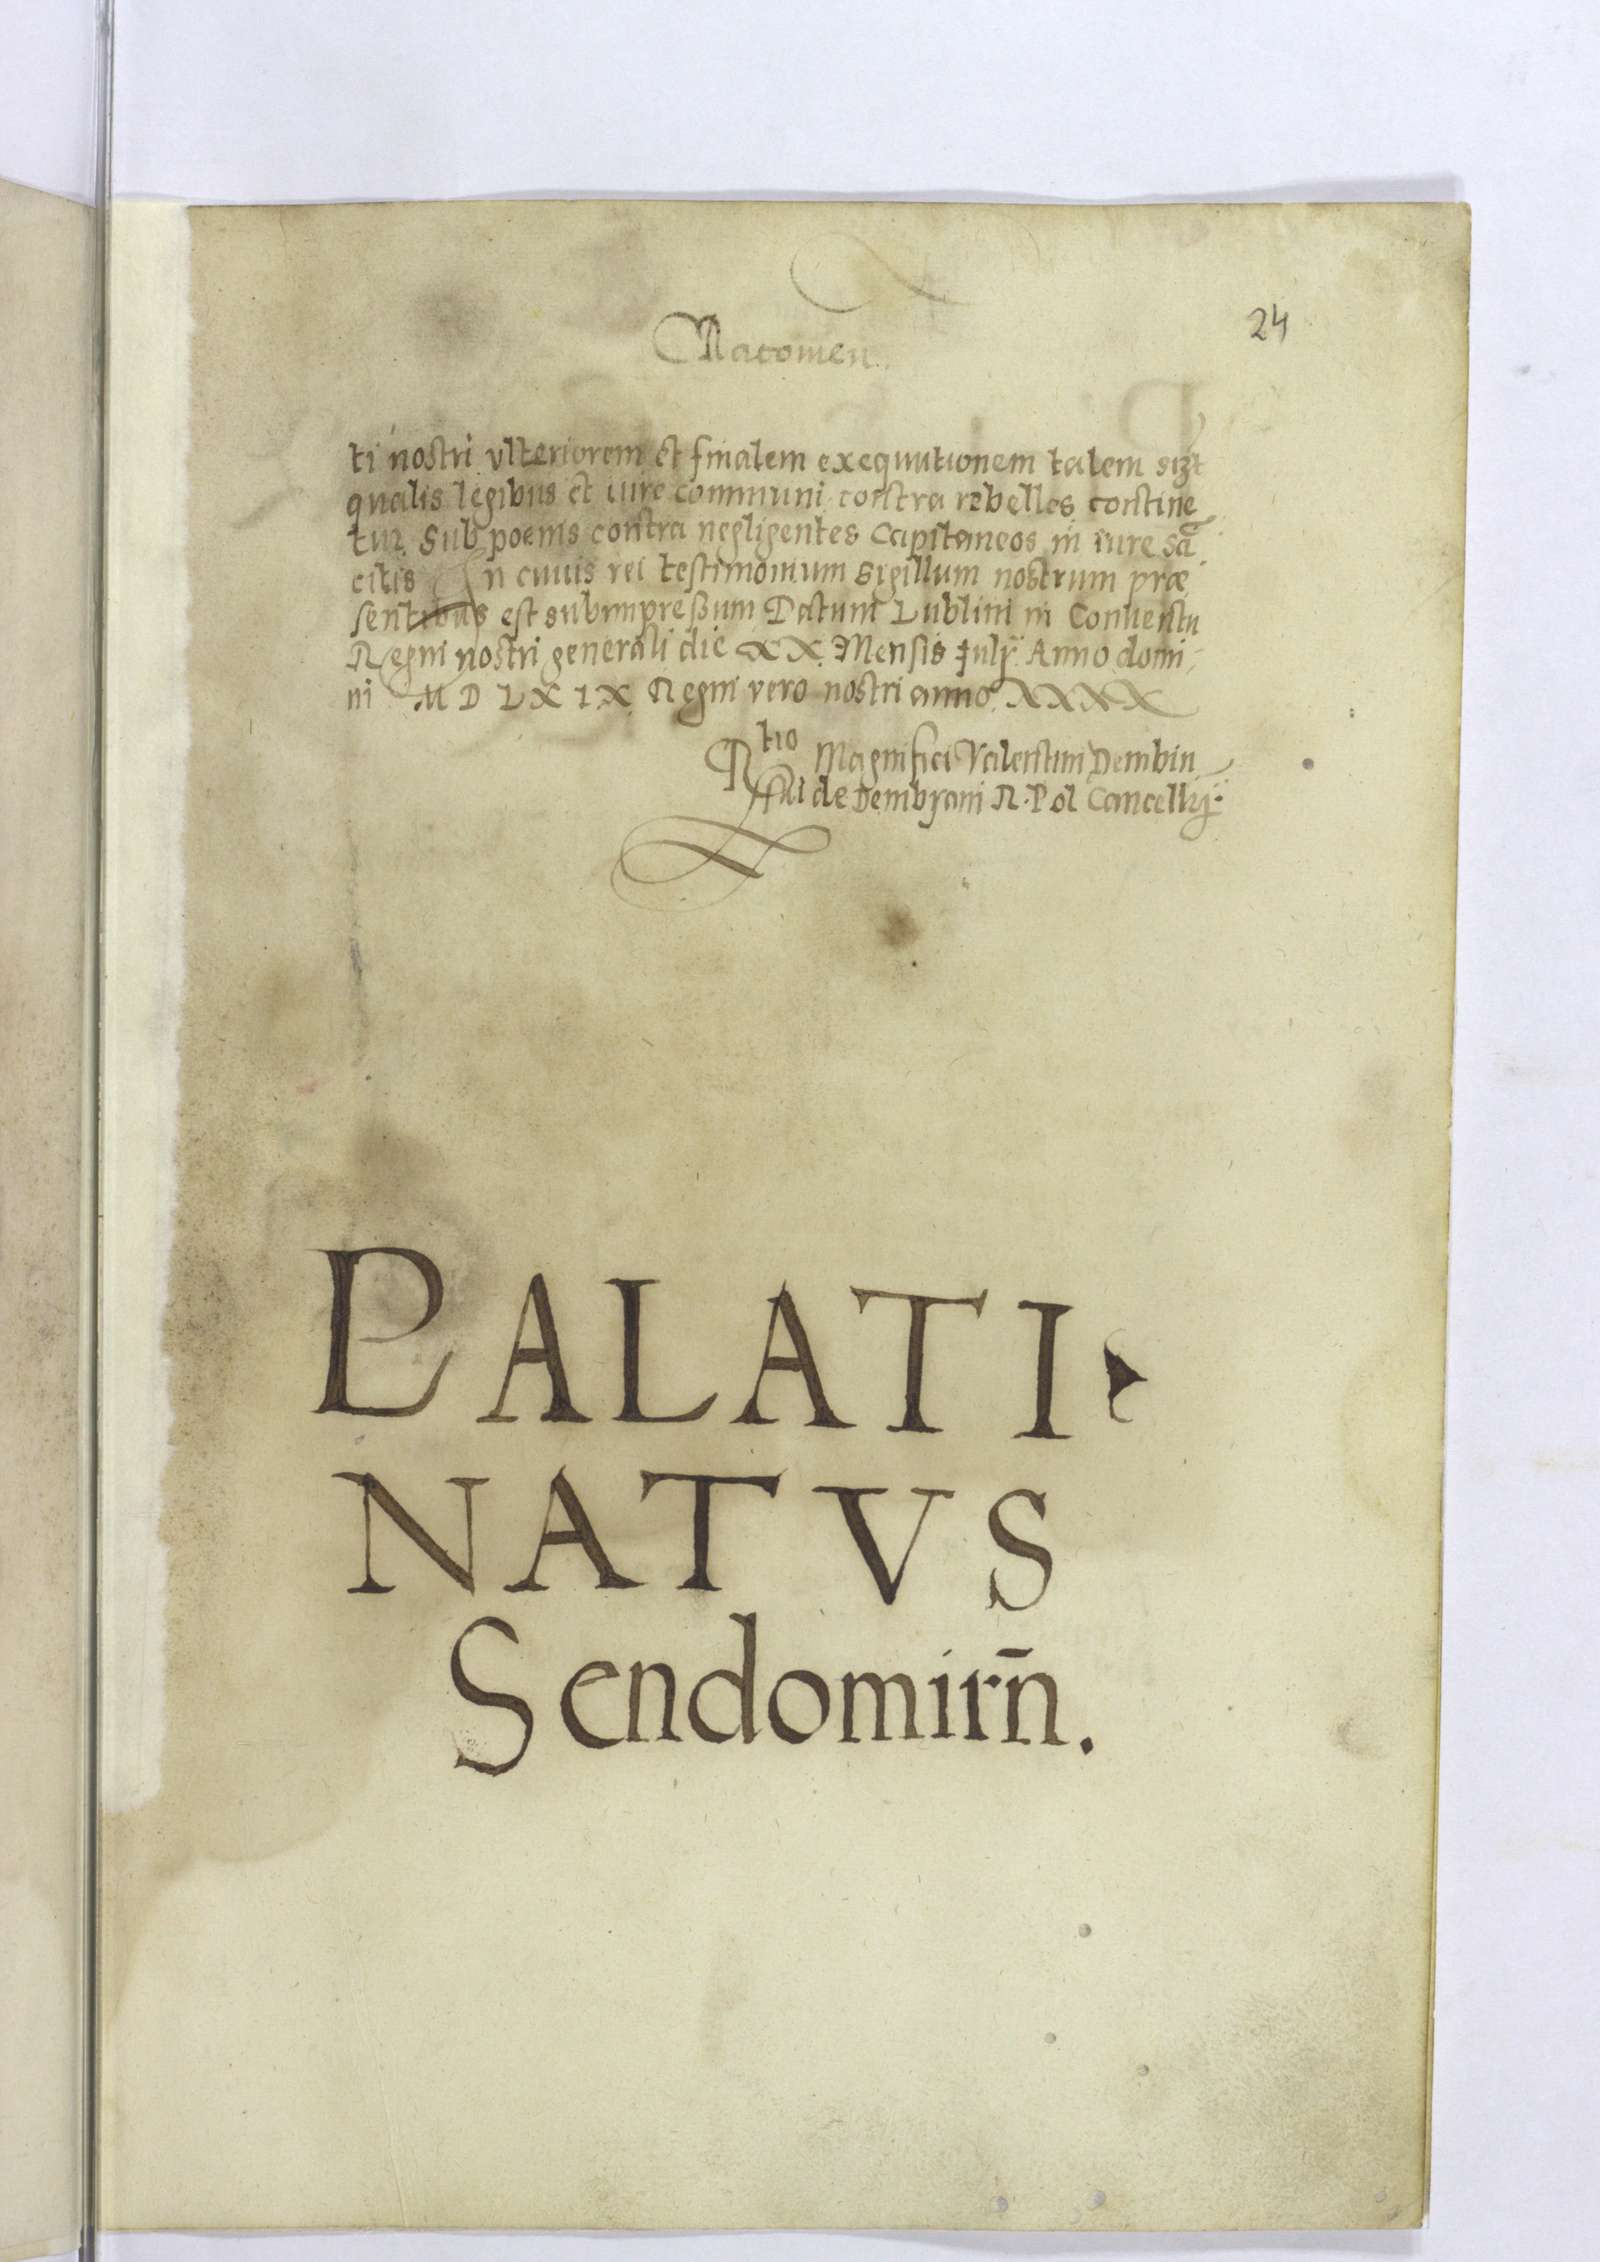 24
ti nostri vlteriorem et finalem exequutionem talem
qualis legibus et iure communi contra rebelles contine
tur. Sub poenis contra negligentes Capitaneos in iure sā
citis In cuius rei testimonium Sigillum nostrum præ
sentibus est subimpreßum Datum Lublini in Conuentu
Regni nostri generali die XX. Mensis Iulij Anno domi
ni M D L X I X Regni vero nostri anno XXXX
Rtio Magnifici Valentini Dembin
ski de Dembyani R. Pol Cancellrij
PALATI
NATVS
Sendomirn̄.